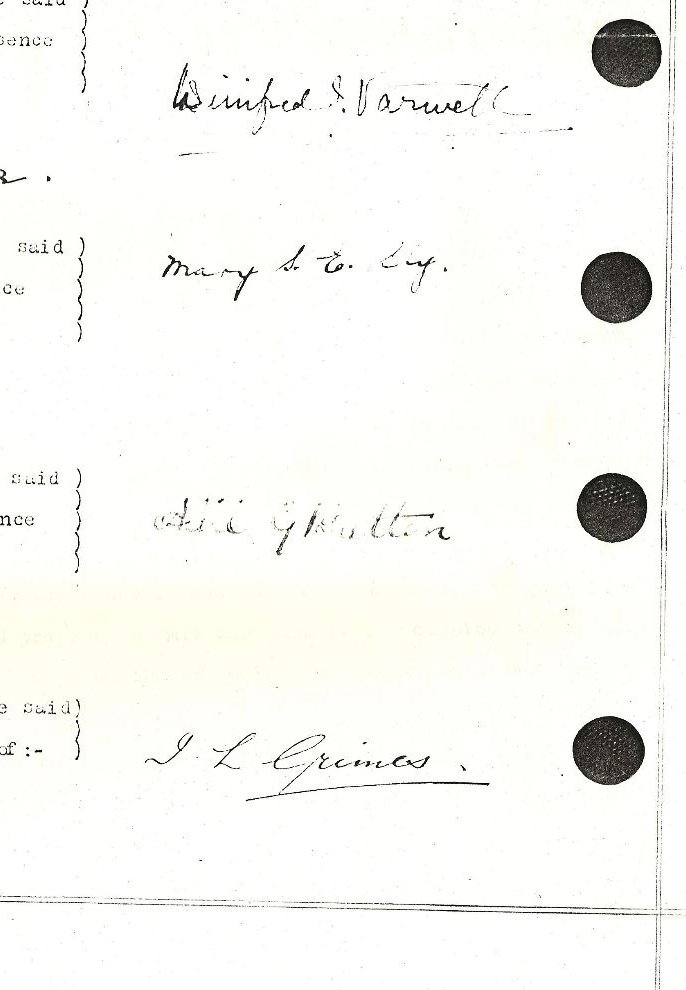 said )
sence
Winifred I. Varwell
said )
ce
Mary S. E.
said )
nce
G Hutton
e said)
of :-
I L Grimes.